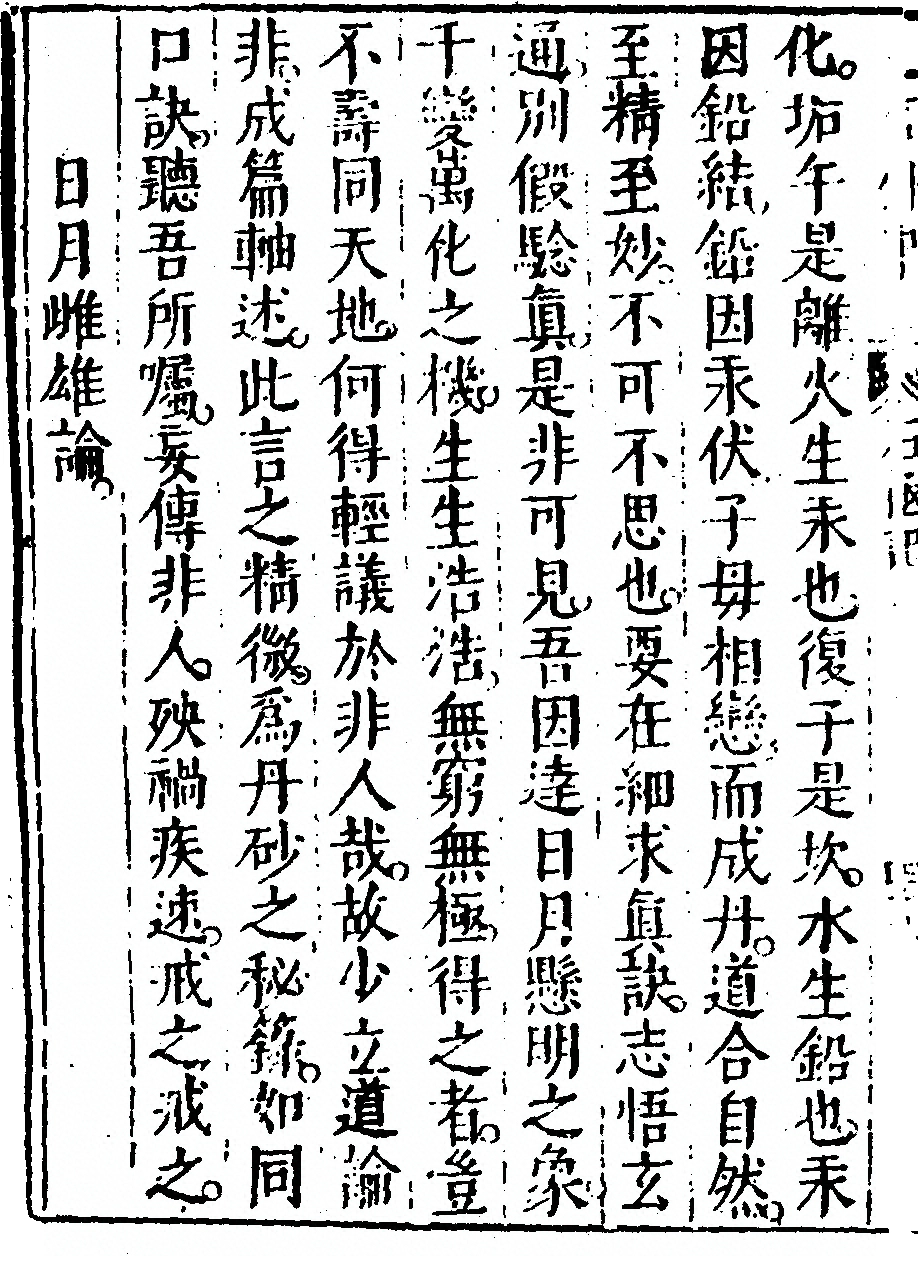 化。垢午是離火生汞也復子是坎。水生鉛也汞
因鉛結、鉛因汞伏子母相戀、而成丹。道合自然。
至精至妙。不可不思也。要在細求眞訣。志悟玄
通、別假驗眞、是非可見、吾因達日月懸明之象、
千變萬化之機。生生浩浩、無窮無極、得之者。豈
不壽同天地。何得輕議於非人哉。故少立道論
非。成篇軸述。此言之精微。爲丹砂之秘籙。如同
口訣。聽吾所囑。妄傳非人。殃禍疾速。戒之戒之。
日月雌雄論。